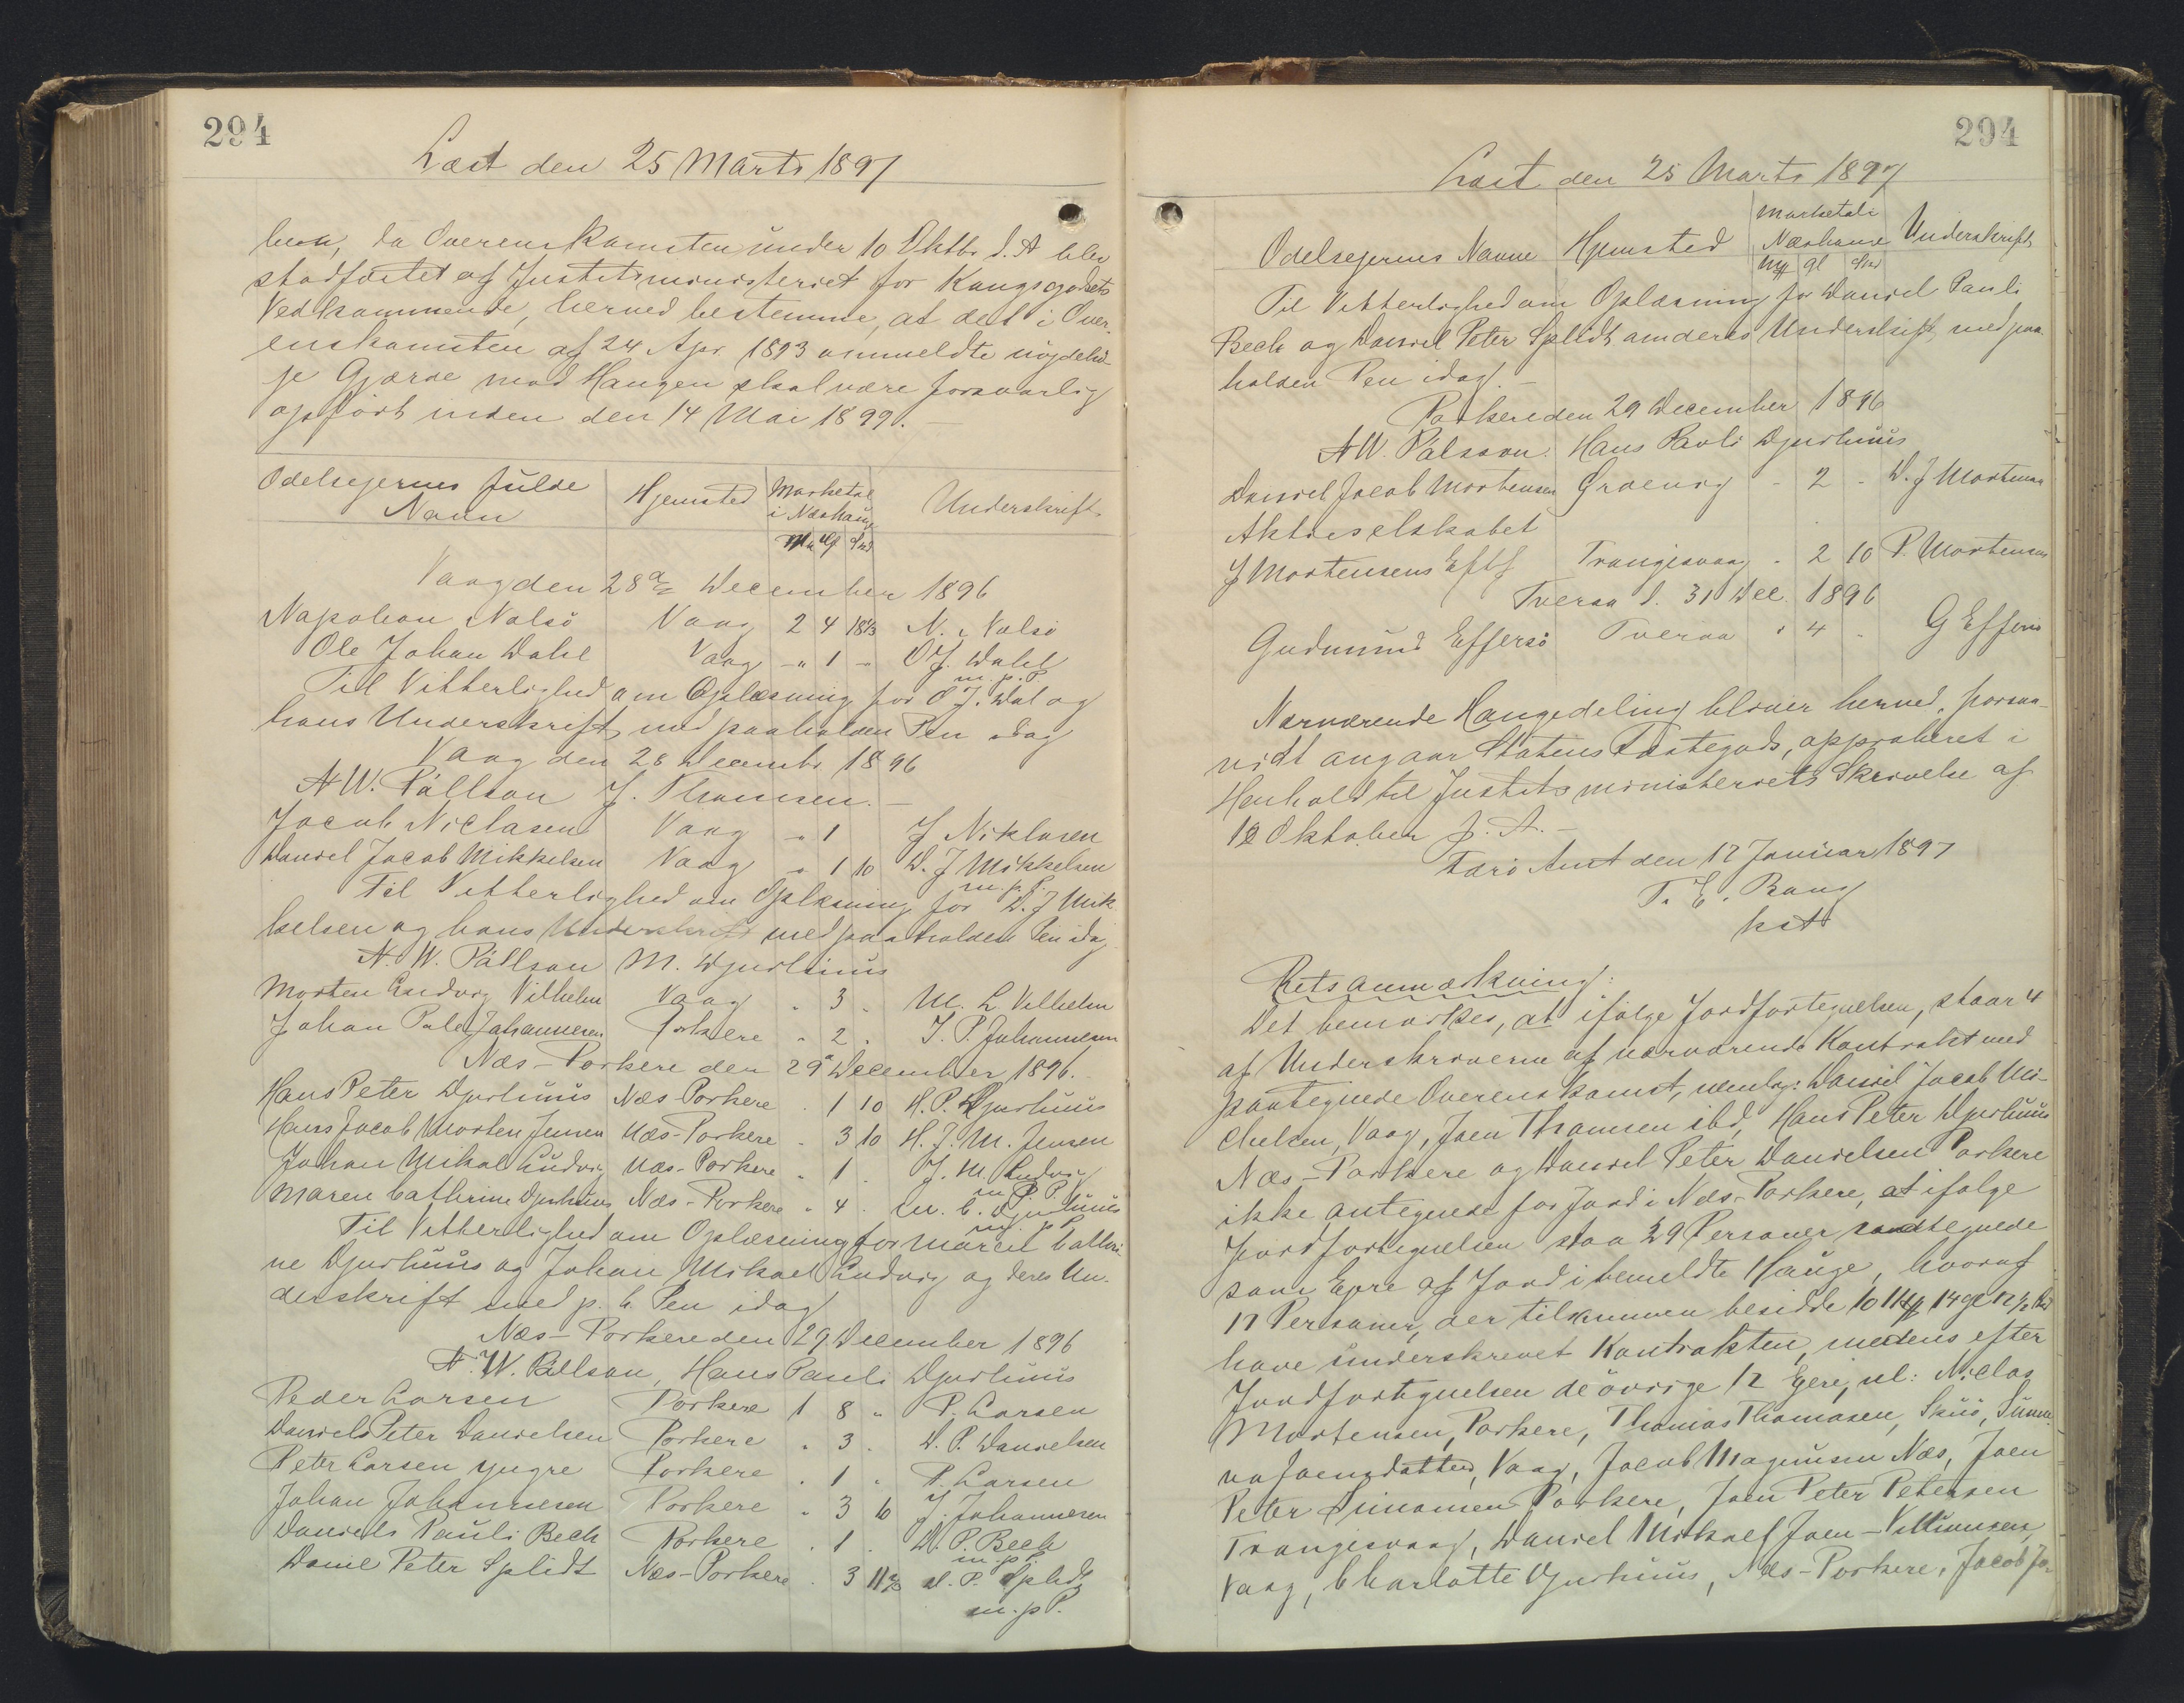 294
Læst den 25 Marts 1897
da Overenskomsten under 10 Oktbr d. A blev
stadfæstet af Justitsministeriet for Kongsgodsets
Vedkommende, herved bestemme, at det i Over-
enskomsten af 24 Apr. 1893 ommeldte
Gjærde mod Haugen skal være forsvarlig
opført inden den 14 Mai 1899. —
Odelsejernes fulde Navn Hjemsted Marketal i Næshauge Underskrift
Mk Gl Skd
Vaag den 28 December 1896
Napoleon Nolsö Vaag 2 4 18 1/3 N. Nolsö
Ole Johan Dahl Vaag - " 1 - O J. Dahl
m. p. P
Til Vitterlighed om Oplæsning for O J. Dal og
hans Underskrift med paaholden Pen idag
Vaag den 28 Decembr 1896
N W. Pállson J. Thomsen. —
Jacob Niclasen Vaag - " 1 J Niklasen
Daniel Jacob Mikkelsen Vaag " 1 10 D. J Mikkelsen
m. p. P.
Til Vitterlighed om Oplæsning for D. J Mik
kelsen og hans Underskrift med paaholden Pen idag
N. W. Pállson M. Djurhuus
Morten Ludvig Vilhelm Vaag " 3 - M. L Vilhelm
Johan Pale Johannesen Porkere " 2 . J. P. Johannesen
Næs-Porkere den 29 December 1896.
Hans Peter Djurhuus Næs Porkere . 1 10 H. P. Djurhuus
Hans Jacob Morten Jensen Næs-Porkere . 3 10 H. J. M. Jensen
Johan Mikal Ludvig Næs-Porkere " 1 . J. M. Ludvig
m P. P.
Maren Cathrine Djurhuus Næs-Porkere " 4 . M. C. Djurhuus
m. p P.
Til Vitterlighed om Oplæsning for Maren Cathri
ne Djurhuus og Johan Mikael Ludvig og deres Un-
derskrift med p. h. Pen idag
Næs-Porkere den 29 December 1896
N. W. Pállson, Hans Pauli Djurhuus
Peder Larsen Porkere 1 8 " P. Larsen
Daniel Peter Danielsen Porkere " 3 . D. P. Danielsen
Peter Larsen yngre Porkere . 1 " P. Larsen
Johan Johannesen Porkere . 3 10 J. Johannesen
Daniels Pauli Bech Porkere . 1 . D. P. Bech
m. p P.
Daniel Peter Splidt Næs-Porkere . 3 11 2/3 D. P. Splidt
m. p P.
294
Læst den 25 Marts 1897
Odelsejernes Navne Hjemsted Marketal i Næshauge Underskrift
Mk gl Skd
Til Vitterlighed om Oplæsning for Daniel Pauli
Bech og Daniel Peter Splidt om deres Underskrift med paa
holden Pen idag. —
Porkere den 29 December 1896
N W. Pálsson. Hans Pauli Djurhuus
Daniel Jacob Mortensen - 2 - D. J Mortensen
Aktieselskabet
J Mortensens Eftf Trangisvaag . 2 10 P. Mortensen
Tveraa d. 31 Dec. 1896
Gudmund Effersö Tveraa " 4 . G Effersö
Nærværende Haugedeling bliver herved, forsaa-
vidt angaar Statens Fæstegods, approberet i
Henhold til Justitsministeriets Skrivelse af
10 Oktober f. A. —
Færö Amt den 12 Januar 1897
T. E. Bang
kst
Retsanmærkning:
Det bemærkes, at ifølge Jordfortegnelsen, staar 4
af Underskriverne af nærværende Kontrakt med
paategnede Overenskomst, nemlig: Daniel Jacob Mi-
chelsen, Vaag, Joen Thomsen ibd, Hans Peter Djurhuus
Næs-Porkere og Daniel Peter Danielsen Porkere
ikke antegnede for Jord i Næs-Porkere, at ifølge
Jordfortegnelsen staa 29 Personer antegnede
som Ejere af Jord i bemeldte Hauge, hvoraf
17 Personer, der tilsammen besidde 10 Mk 14 gl 12 1/2 Skd
have underskrevet Kontrakten, medens efter
Jordfortegnelsen de övrige 12 Ejere, nl: Niclas
Mortensen, Porkere, Thomas Thomasen, Sunne-
va Joensdatter, Vaag, Jacob Magnusen Næs, Joen
Peter Simonsen Porkere, Joen Peter Petersen
Trangisvaag, Daniel Mikael Joen-Villiamsen,
Vaag, Charlotte Djurhuus, Næs-Porkere, Jacob Jo-